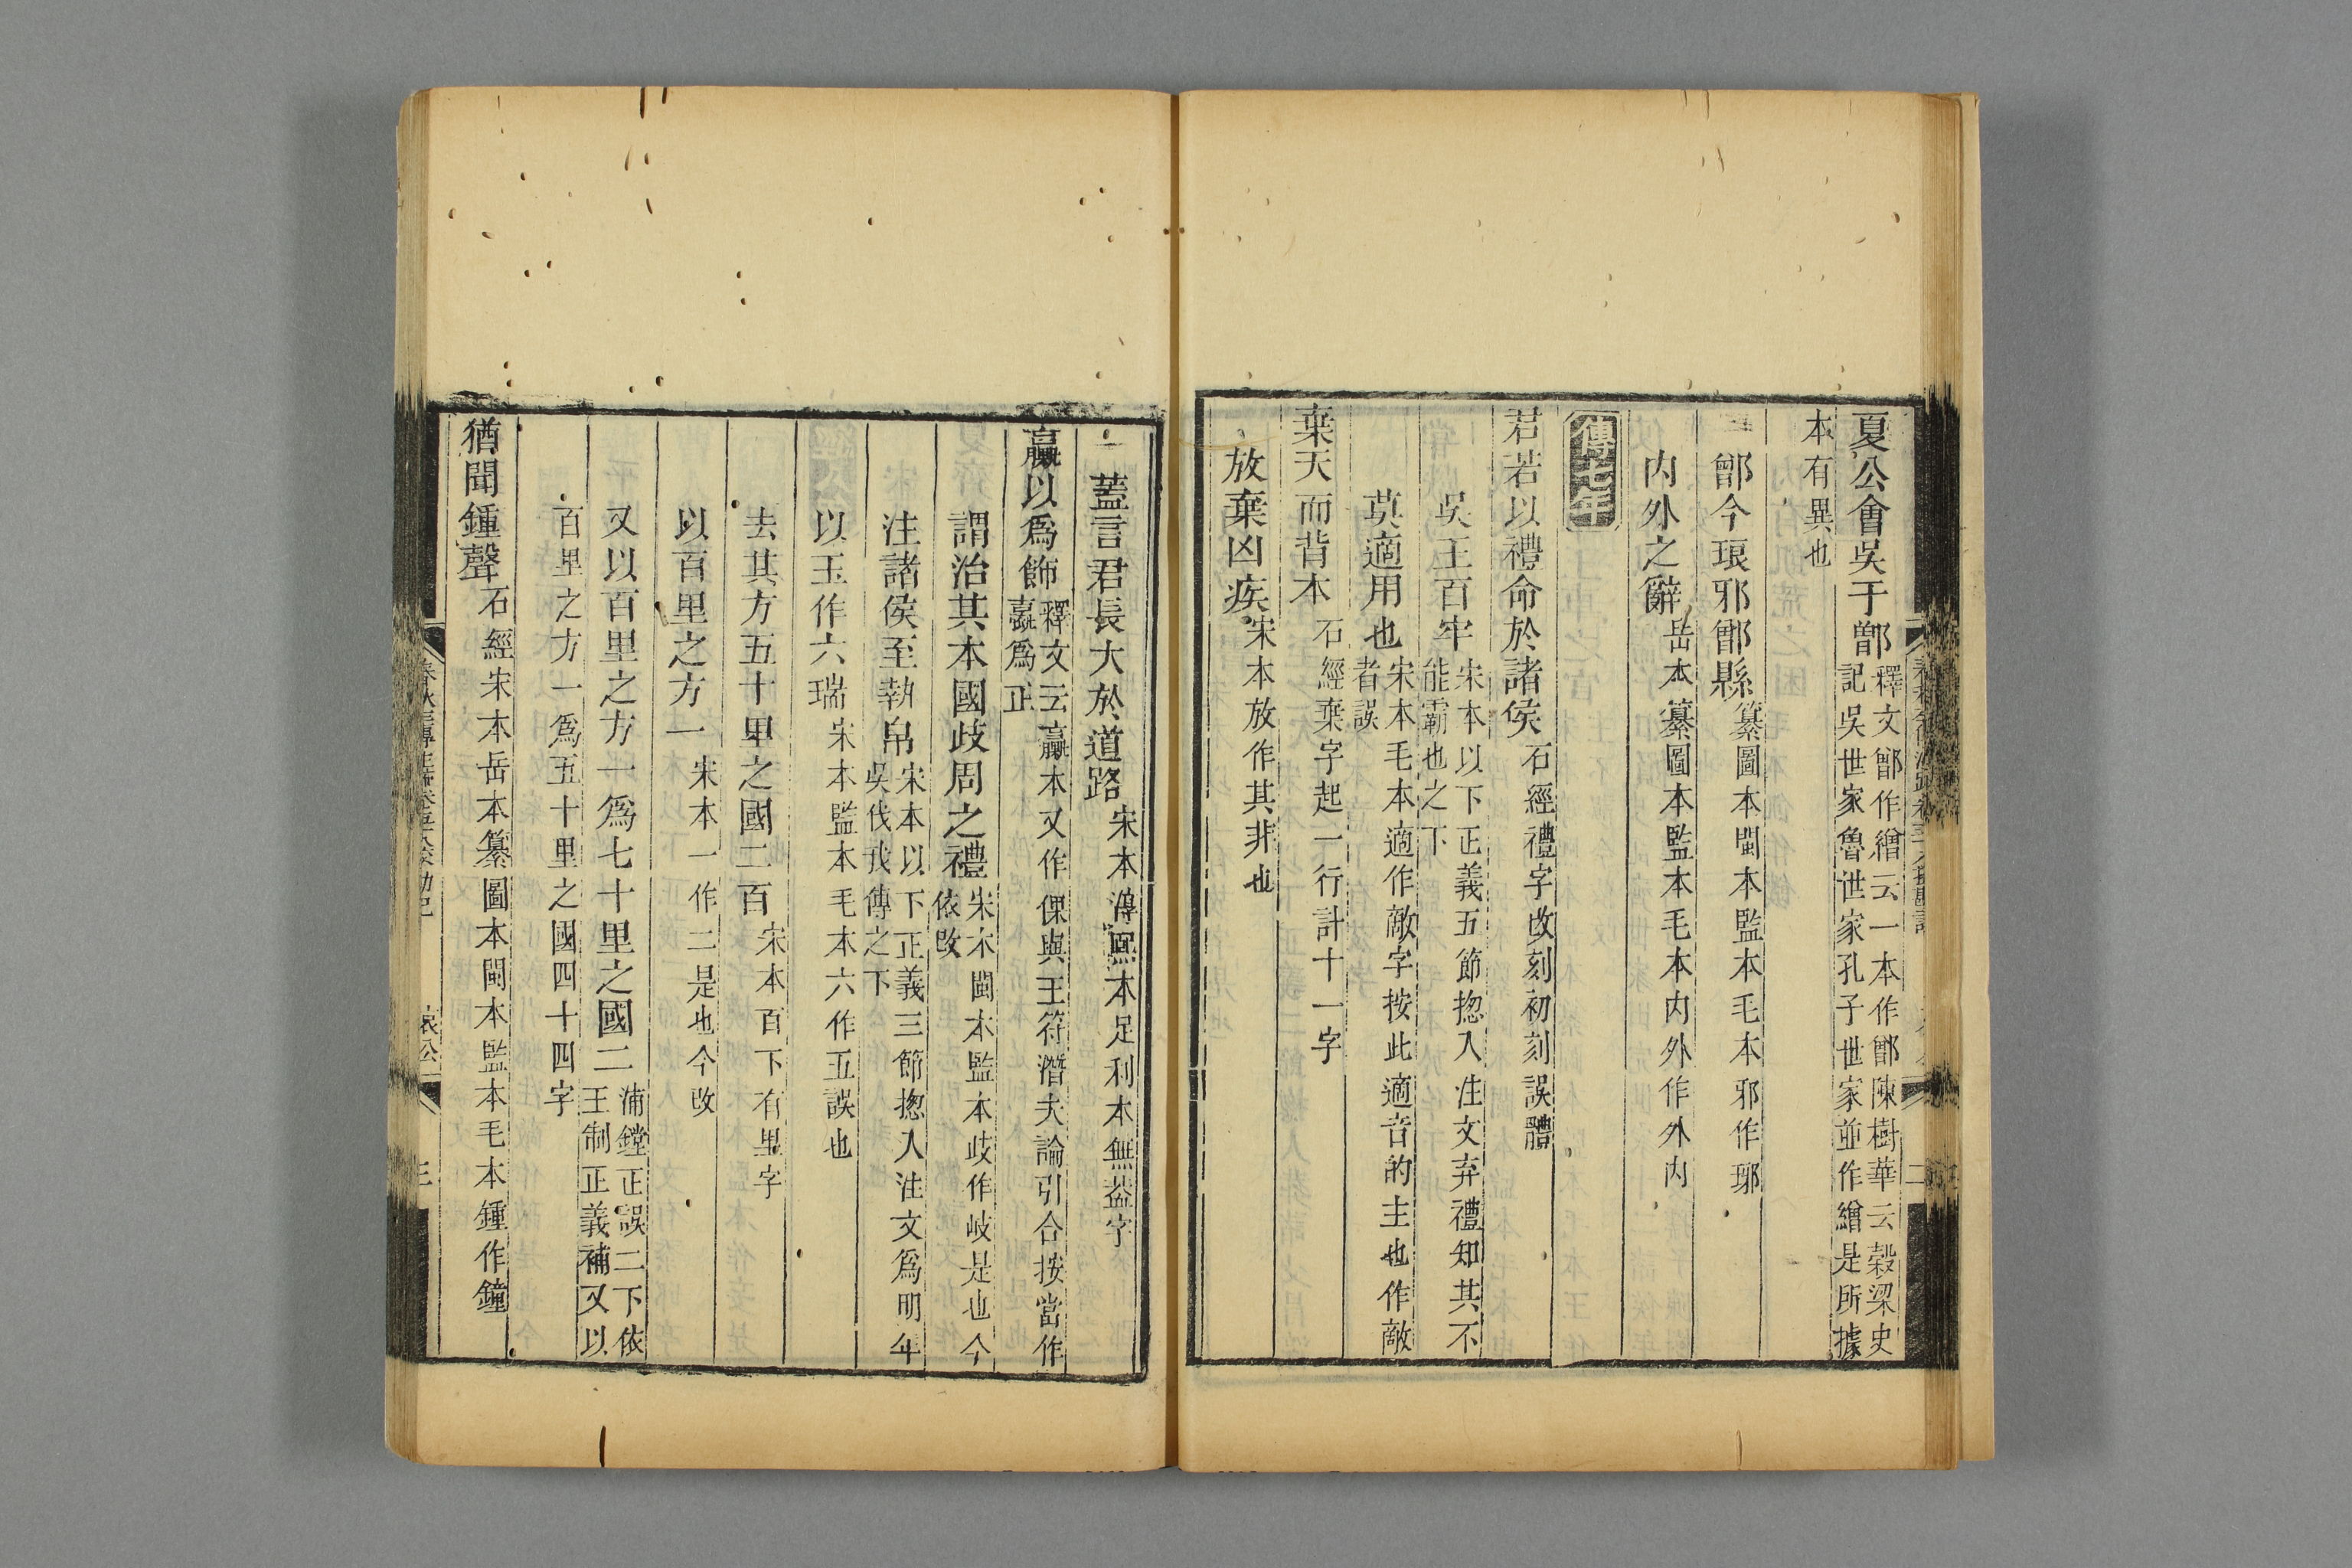 夏公會吳于鄫釋文鄫作繒云一本作鄫陳樹華云榖梁史
記吳世家魯世家孔子世家並作繒是所據
本有異也
鄫今琅邪鄫縣纂圖本閩本監本毛本邪作琊
内外之辭岳本纂圖本監本毛本内外作外内
傳七年
君若以禮命於諸侯石經禮字改刻初刻誤體
吳王百牢宋本以下正義五節揔入注文弃禮知其不
能霸也之下
莫適用也宋本毛本適作敵字按此適音的主也作敵
者誤
棄天而背本石經棄字起一行計十一字
放棄凶疾宋本放作其非也
蓋言君長大於道路宋本淳熙本足利本無蓋字
羸以爲飾釋文云羸本又作倮與王符潛夫論引合按當作
嬴爲正
謂治其本國歧周之禮宋本閩本監本歧作岐是也今
依改
注諸侯至執帛宋本以下正義三節揔入注文爲明年
吳伐我傳之下
以玉作六瑞宋本監本毛本六作五誤也
去其方五十里之國二百宋本百下有里字
以百里之方一宋本一作二是也今改
又以百里之方一爲七十里之國二浦鏜正誤二下依
王制正義補又以
百里之方一爲五十里之國四十四字
猶聞鍾聲石經宋本岳本纂圖本閩本監本毛本鍾作鐘